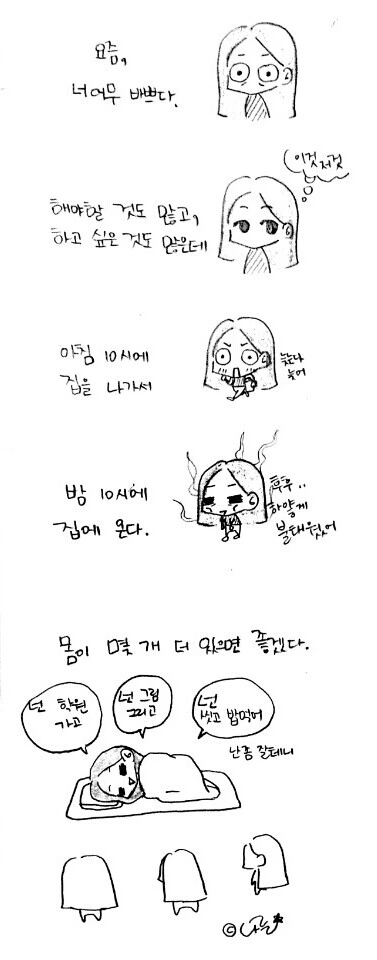 요즘,
너어무 바쁘다.
이것저것
해야할 것도 많고,
하고 싶은 것도 많은데
아침 10시에
집을 나가서
늦었다
늦어
밤 10시에
집에 온다.
후후..
하얗게
불태웠어
몸이 몇 개 더 있으면 좋겠다.
넌 학원
가고
넌 그림
그리고
넌
씻고 밥먹어
난좀 잘테니
©나늘